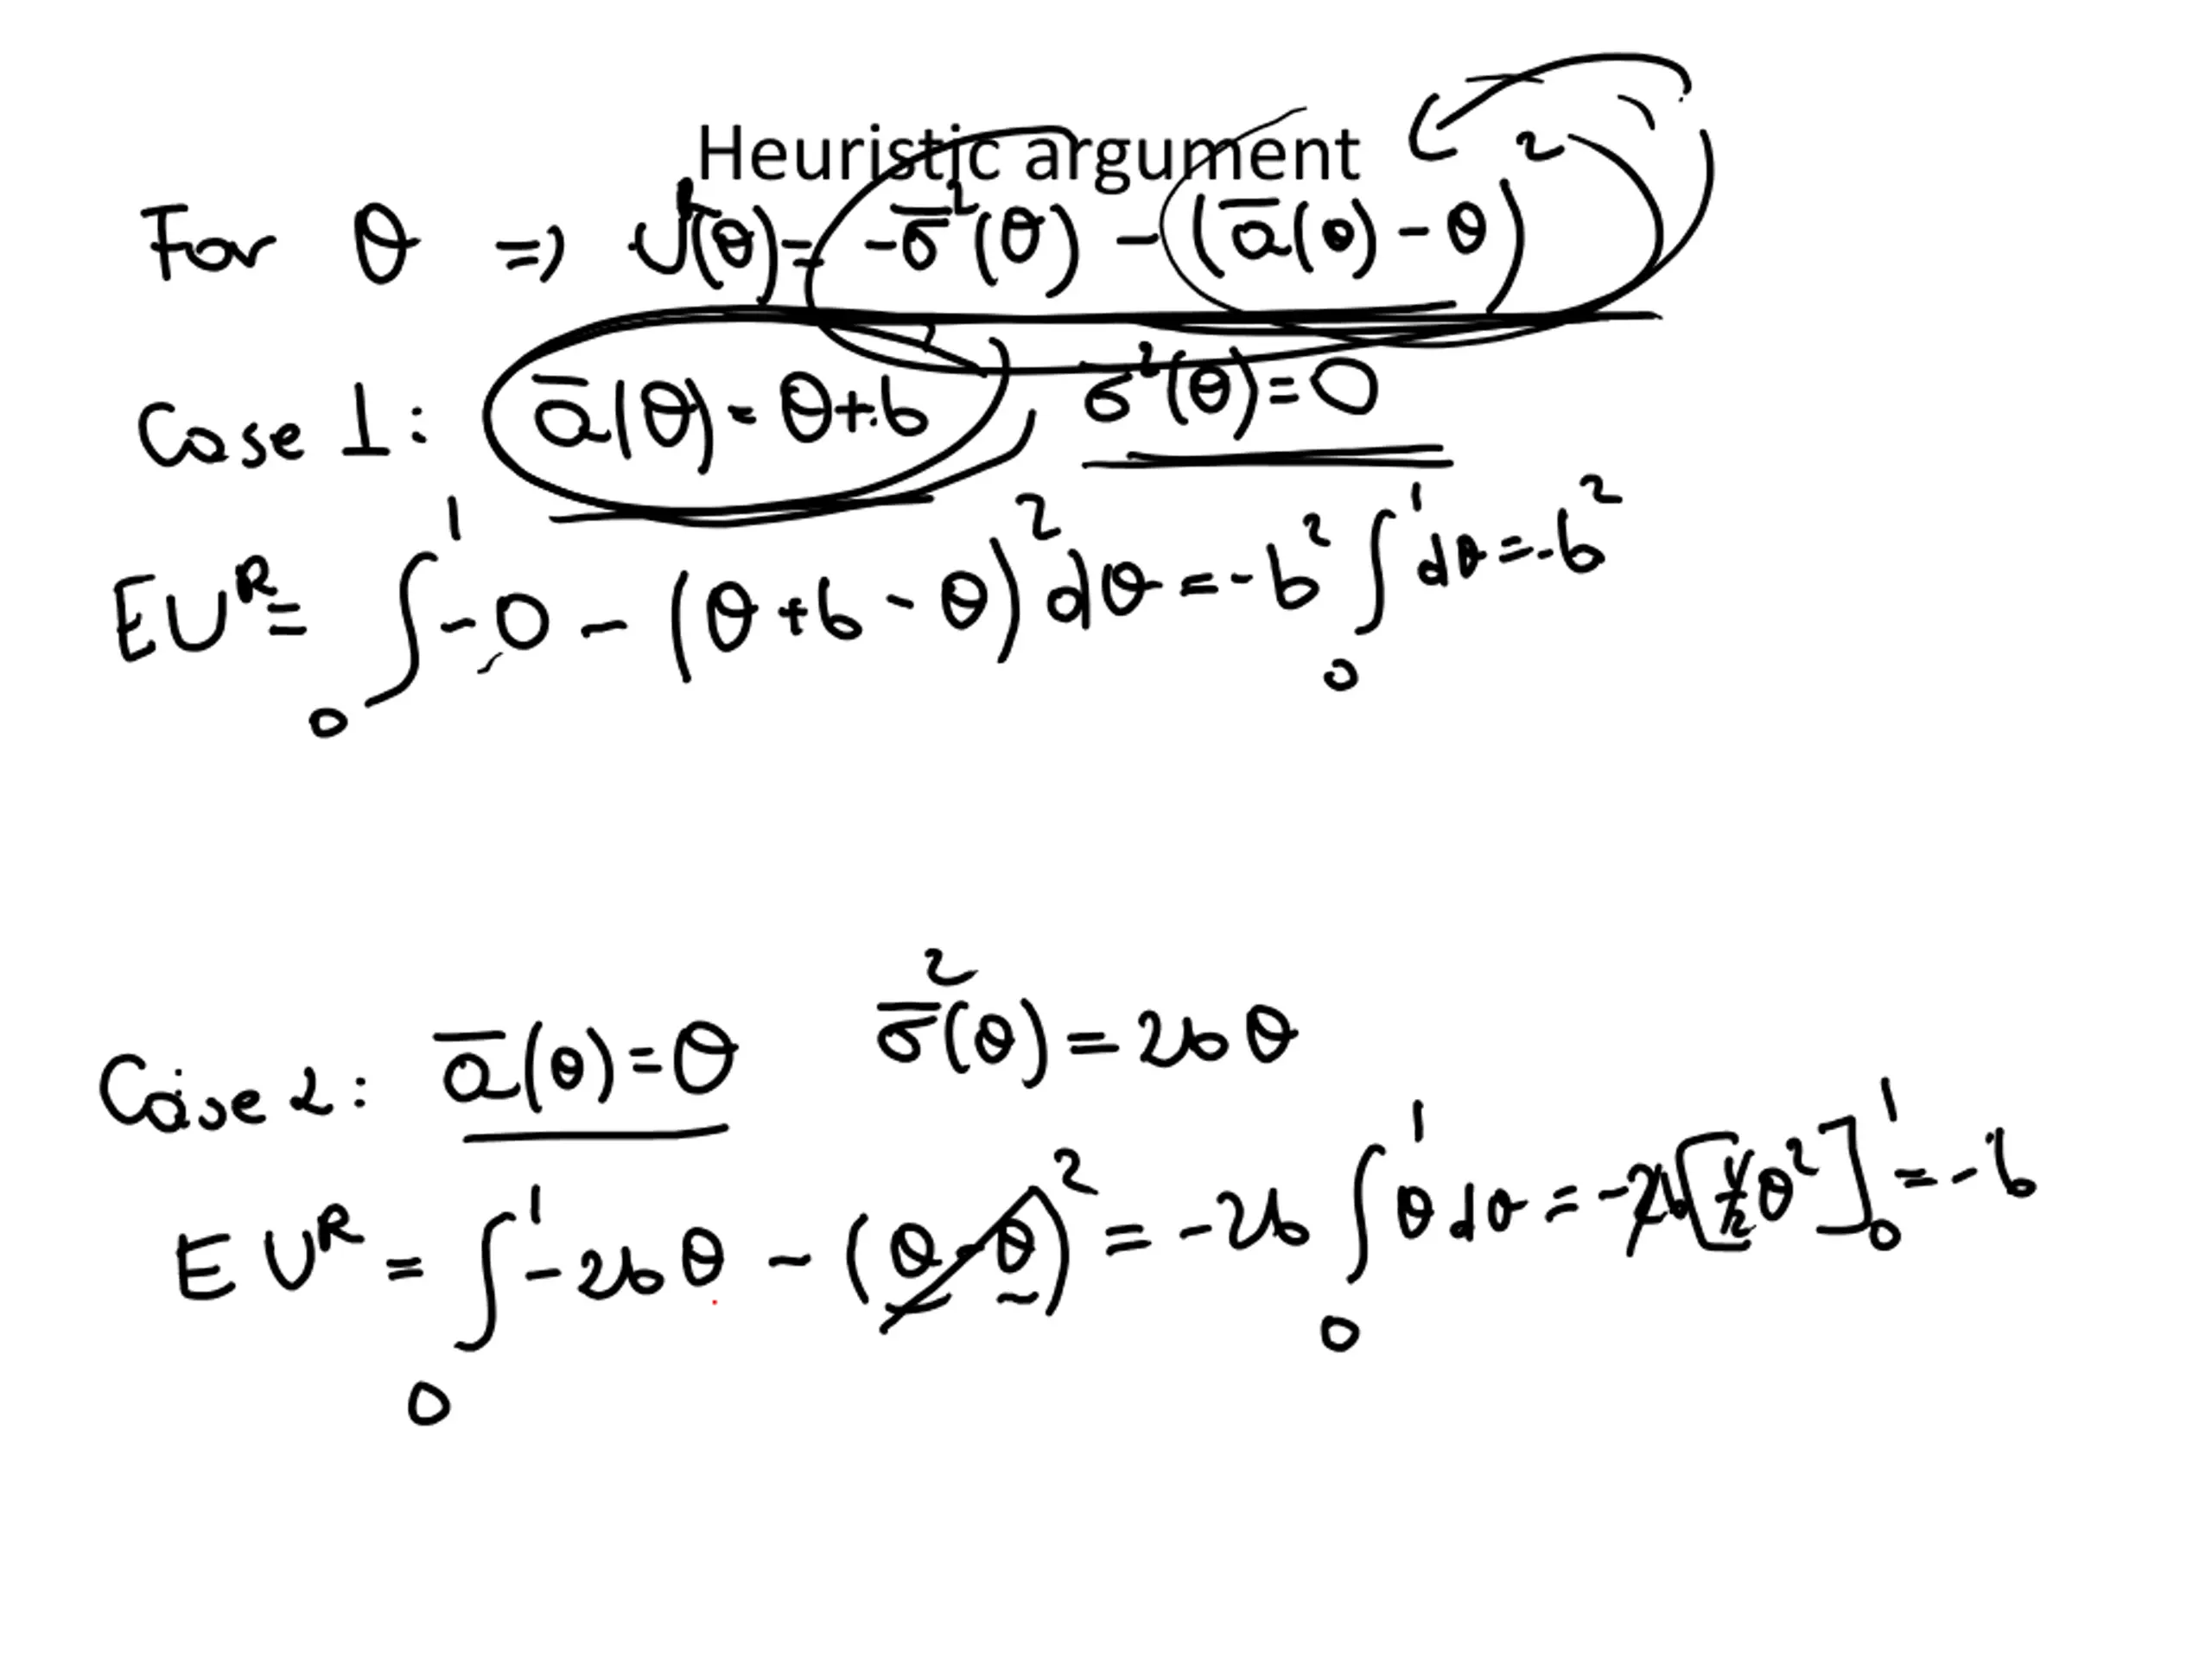 Heuristic argument
For θ ⇒ U^R(θ) = -σ̄²(θ) - (ā(θ) - θ)²
Case 1: ā(θ) = θ+b σ̄²(θ) = 0
EU^R = ∫₀¹ -0 - (θ+b-θ)² dθ = -b² ∫₀¹ dθ = -b²
Case 2: ā(θ) = θ σ̄²(θ) = 2bθ
EU^R = ∫₀¹ -2bθ - (θ-θ)² = -2b ∫₀¹ θ dθ = -2b[½θ²]₀¹ = -b